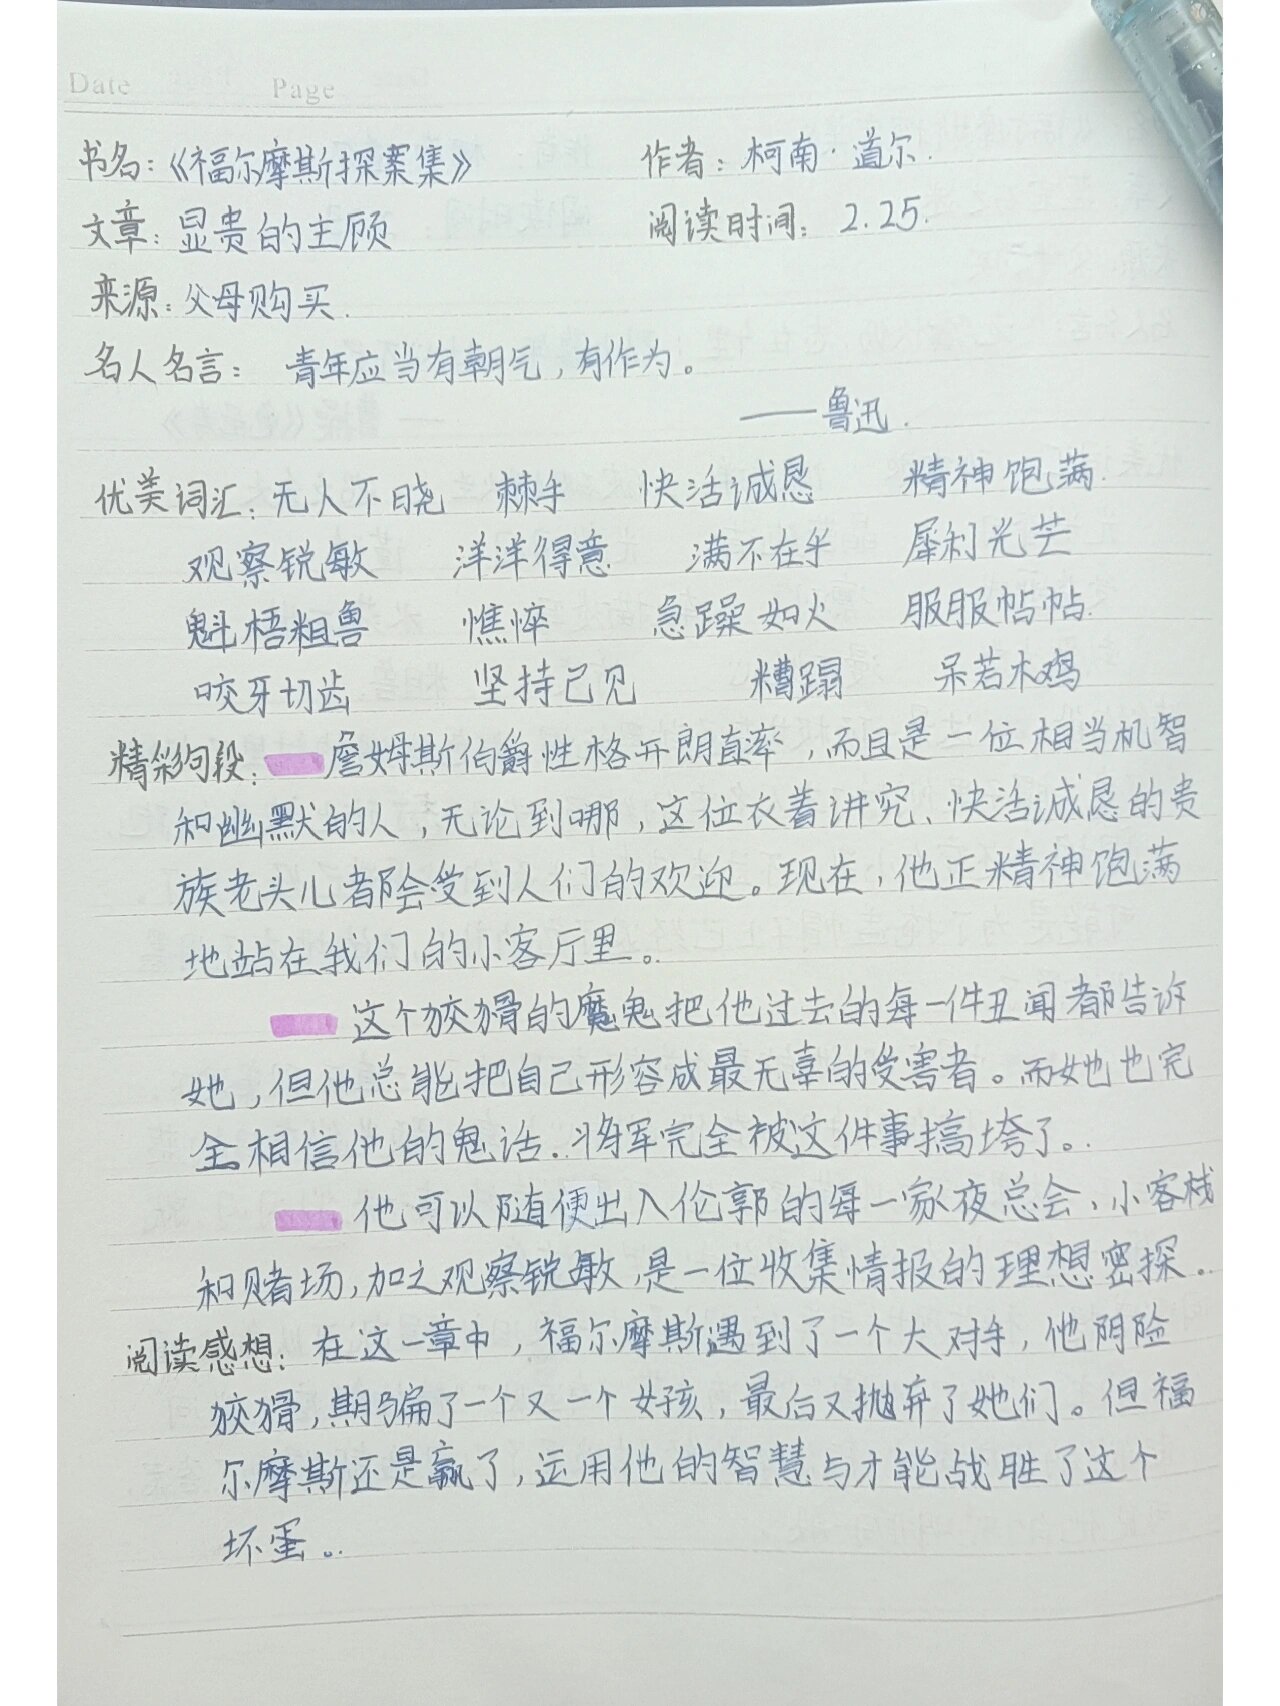 Date Page
书名:《福尔摩斯探案集》 作者:柯南·道尔.
文章:显贵的主顾 阅读时间:2.25.
来源:父母购买.
名人名言: 青年应当有朝气,有作为。
——鲁迅.
优美词汇:无人不晓 棘手 快活诚恳 精神饱满.
观察锐敏 洋洋得意 满不在乎 犀利光芒
魁梧粗兽 憔悴 急躁如火 服服帖帖.
咬牙切齿 坚持己见 糟蹋 呆若木鸡
精彩句段: 詹姆斯伯爵性格开朗直率,而且是一位相当机智
和幽默的人,无论到哪,这位衣着讲究、快活诚恳的贵
族老头儿都会受到人们的欢迎。现在,他正精神饱满
地站在我们的小客厅里。
这个狡猾的魔鬼把他过去的每一件丑闻都告诉
她,但他总能把自己形容成最无辜的受害者。而她也完
全相信他的鬼话.将军完全被这件事搞垮了。
他可以随便出入伦郭的每一家夜总会、小客栈
和赌场,加之观察锐敏,是一位收集情报的理想密探。
阅读感想:在这一章中,福尔摩斯遇到了一个大对手,他阴险
狡猾,期骗了一个又一个女孩,最后又抛弃了她们。但福
尔摩斯还是赢了,运用他的智慧与才能战胜了这个
坏蛋。